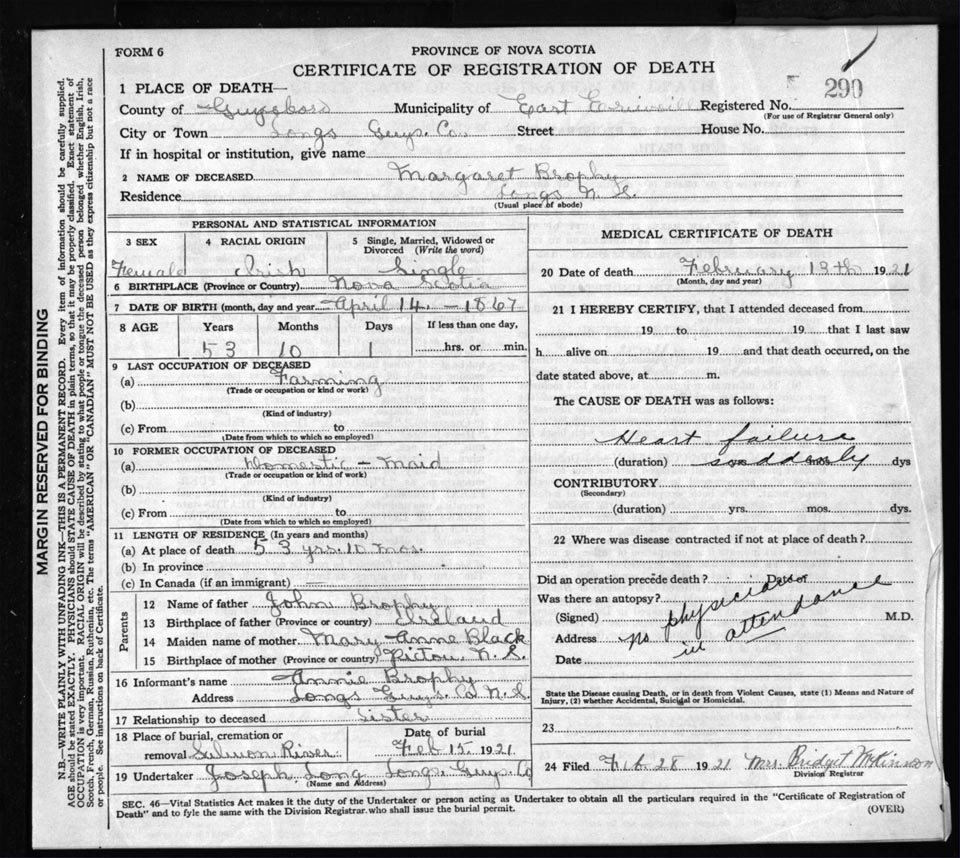 FORM 6
PROVINCE OF NOVA SCOTIA
CERTIFICATE OF REGISTRATION OF DEATH
290
1 PLACE OF DEATH—
County of Guysboro Municipality of East Registered No.
(For use of Registrar General only)
City or Town Longs Guys. Co. Street House No.
If in hospital or institution, give name
2 NAME OF DECEASED Margaret Brophy
Residence Longs N. S.
(Usual place of abode)
PERSONAL AND STATISTICAL INFORMATION
3 SEX 4 RACIAL ORIGIN 5 Single, Married, Widowed or Divorced (Write the word)
Female Irish Single
6 BIRTHPLACE (Province or Country) Nova Scotia
7 DATE OF BIRTH (month, day and year) April 14 - 1867
8 AGE Years Months Days If less than one day,
53 10 1 hrs. or min.
9 LAST OCCUPATION OF DECEASED
(a) Farming
(Trade or occupation or kind or work)
(b)
(Kind of industry)
(c) From to
(Date from which to which so employed)
10 FORMER OCCUPATION OF DECEASED
(a) Domestic - Maid
(Trade or occupation or kind of work)
(b)
(Kind of industry)
(c) From to
(Date from which to which so employed)
11 LENGTH OF RESIDENCE (In years and months)
(a) At place of death 53 yrs. 10 mos.
(b) In province
(c) In Canada (if an immigrant) —
Parents
12 Name of father John Brophy
13 Birthplace of father (Province or country) Ireland
14 Maiden name of mother Mary Anne Black
15 Birthplace of mother (Province or country) Pictou, N. S.
16 Informant's name Annie Brophy
Address Longs Guys. Co N. S.
17 Relationship to deceased Sister
18 Place of burial, cremation or removal Salmon River Date of burial Feb 15 1921
19 Undertaker Joseph Long Longs Guys. Co
(Name and Address)
MEDICAL CERTIFICATE OF DEATH
20 Date of death February 13th 1921
(Month, day and year)
21 I HEREBY CERTIFY, that I attended deceased from
19 to 19 that I last saw
h alive on 19 and that death occurred, on the
date stated above, at m.
The CAUSE OF DEATH was as follows:
Heart failure
(duration) suddenly dys
CONTRIBUTORY
(Secondary)
(duration) yrs. mos. dys.
22 Where was disease contracted if not at place of death?
Did an operation precede death? Date of
Was there an autopsy?
(Signed) M.D.
Address
Date
no physician
in attendance
State the Disease causing Death, or in death from Violent Causes, state (1) Means and Nature of
Injury, (2) whether Accidental, Suicidal or Homicidal.
23
24 Filed Feb 28 1921 Mrs. Bridget
Division Registrar
SEC. 46—Vital Statistics Act makes it the duty of the Undertaker or person acting as Undertaker to obtain all the particulars required in the "Certificate of Registration of
Death" and to fyle the same with the Division Registrar who shall issue the burial permit.
(OVER)
MARGIN RESERVED FOR BINDING
N.B.—WRITE PLAINLY WITH UNFADING INK—THIS IS A PERMANENT RECORD. Every item of information should be carefully supplied.
AGE should be stated EXACTLY. PHYSICIANS should STATE CAUSE OF DEATH in plain terms, so that it may be properly classified. Exact statement of
OCCUPATION is very important. RACIAL ORIGIN will be described by stating to what people or tongue the deceased person belonged whether English, Irish,
Scotch, French, German, Russian, Ruthenian, etc. The terms "AMERICAN" OR "CANADIAN" MUST NOT BE USED as they express citizenship but not a race
or people. See instructions on back of Certificate.